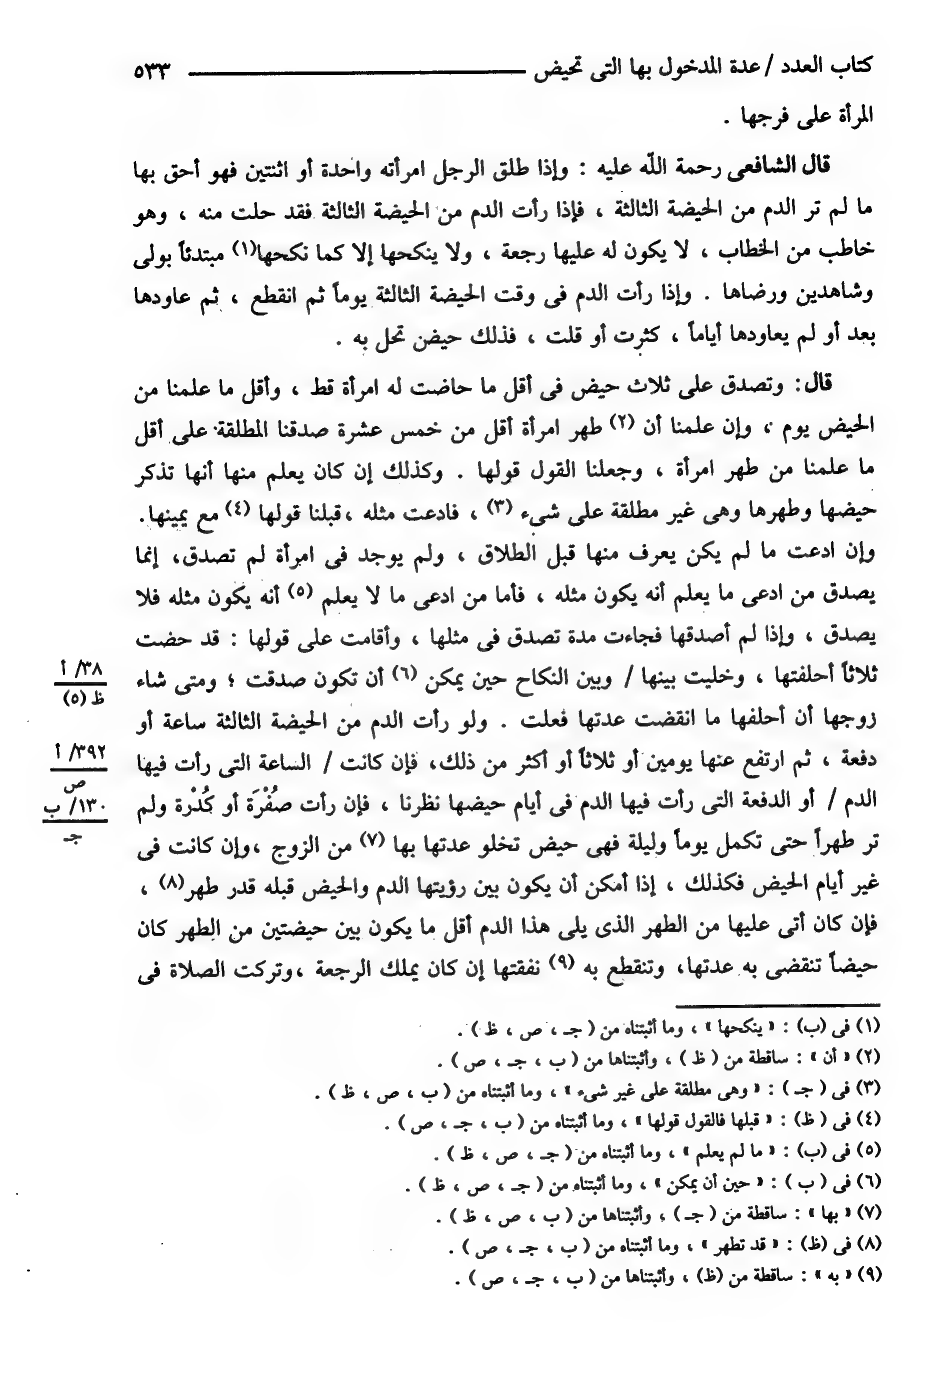 كتاب العدد / عدة المدخول بها التى تحيض ــــــــــــــــــــ ٥٣٣
المرأة على فرجها .
قال الشافعى رحمة اللّه عليه : وإذا طلق الرجل امرأته واحدة أو اثنتين فهو أحق بها
ما لم تر الدم من الحيضة الثالثة ، فإذا رأت الدم من الحيضة الثالثة فقد حلت منه ، وهو
خاطب من الخطاب ، لا يكون له عليها رجعة ، ولا ينكحها إلا كما نكحها(١) مبتدئاً بولى
وشاهدين ورضاها . وإذا رأت الدم فى وقت الحيضة الثالثة يوماً ثم انقطع ، ثم عاودها
بعد أو لم يعاودها أياماً ، كثرت أو قلت ، فذلك حيض تحل به .
قال : وتصدق على ثلاث حيض فى أقل ما حاضت له امرأة قط ، وأقل ما علمنا من
الحيض يوم ، وإن علمنا أن (٢) طهر امرأة أقل من خمس عشرة صدقنا المطلقة على أقل
ما علمنا من طهر امرأة ، وجعلنا القول قولها . وكذلك إن كان يعلم منها أنها تذكر
حيضها وطهرها وهى غير مطلقة على شىء (٣) ، فادعت مثله ،قبلنا قولها (٤) مع يمينها.
وإن ادعت ما لم يكن يعرف منها قبل الطلاق ، ولم يوجد فى امرأة لم تصدق، إنما
يصدق من ادعى ما يعلم أنه يكون مثله ، فأما من ادعى ما لا يعلم (٥) أنه يكون مثله فلا
يصدق ، وإذا لم أصدقها فجاءت مدة تصدق فى مثلها ، وأقامت على قولها : قد حضت
ثلاثاً أحلفتها ، وخليت بينها / وبين النكاح حين يمكن (٦) أن تكون صدقت ؛ ومتى شاء
زوجها أن أحلفها ما انقضت عدتها فعلت . ولو رأت الدم من الحيضة الثالثة ساعة أو
دفعة ، ثم ارتفع عنها يومين أو ثلاثاً أو أكثر من ذلك، فإن كانت / الساعة التى رأت فيها
الدم / أو الدفعة التى رأت فيها الدم فى أيام حيضها نظرنا ، فإن رأت صُفْرَة أو كُدْرة ولم
تر طهراً حتى تكمل يوماً وليلة فهى حيض تخلو عدتها بها (٧) من الزوج ،وإن كانت فى
غير أيام الحيض فكذلك ، إذا أمكن أن يكون بين رؤيتها الدم والحيض قبله قدر طهر(٨) ،
فإن كان أتى عليها من الطهر الذى يلى هذا الدم أقل ما يكون بين حيضتين من الطهر كان
حيضاً تنقضى به عدتها، وتنقطع به (٩) نفقتها إن كان يملك الرجعة ،وتركت الصلاة فى
٣٨/ أ
ظ (٥)
٣٩٢/ أ
ص
١٣٠/ ب
جـ
(١) فى (ب) : « ينكحها » ، وما أثبتناه من ( جـ ، ص ، ظ ) .
(٢) « أن » : ساقطة من ( ظ ) ، وأثبتناها من ( ب ، جـ ، ص ) .
(٣) فى ( جـ ) : « وهى مطلقة على غير شىء » ، وما أثبتناه من ( ب ، ص ، ظ ) .
(٤) فى ( ظ ) : « قبلها فالقول قولها » ، وما أثبتناه من ( ب ، جـ ، ص ) .
(٥) فى (ب) : « ما لم يعلم » ، وما أثبتناه من ( جـ ، ص ، ظ ) .
(٦) فى ( ب ) : « حين أن يمكن » ، وما أثبتناه من ( جـ ، ص ، ظ ) .
(٧) « بها » : ساقطة من ( جـ ) ، وأثبتناها من ( ب ، ص ، ظ ) .
(٨) فى (ظ) : « قد تطهر » ، وما أثبتناه من ( ب ، جـ ، ص ) .
(٩) « به » : ساقطة من (ظ) ، وأثبتناها من ( ب ، جـ ، ص ) .